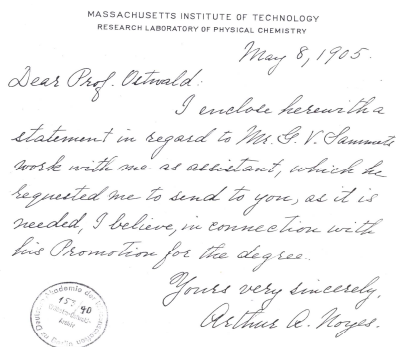 MASSACHUSETTS INSTITUTE OF TECHNOLOGY
RESEARCH LABORATORY OF PHYSICAL CHEMISTRY
May 8, 1905.
Dear Prof. Ostwald:
I enclose herewith a
statement in regard to Mr. G. V. Sammets
work with me as assistant, which he
requested me to send to you, as it is
needed, I believe, in connection with
his Promotion for the degree.
Yours very sincerely,
Arthur A. Noyes.
Akademie der
zu Berlin